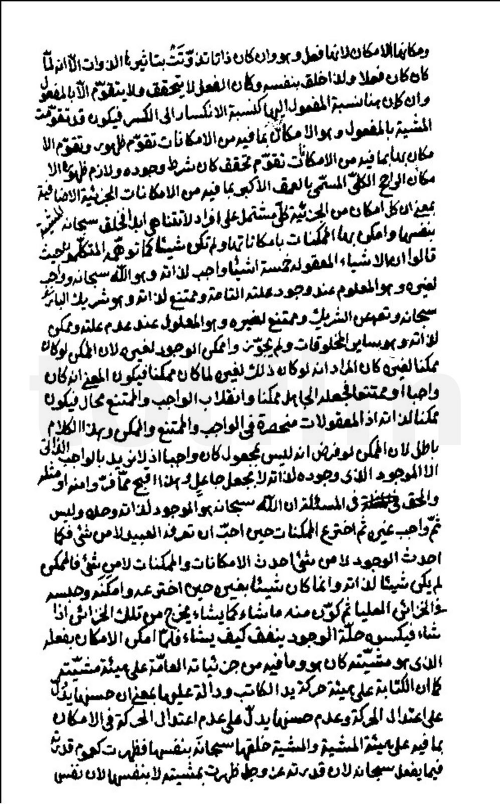 ومكانها الامكان لانها فعل وهو وان كان ذاتا تذوّتت بتاثيرها الذوات الّا انه لمّا
كان كان فعلا ولذا خلق بنفسه وكان الفعل لا يتحقق ولا يتقوّم الّا بالمفعول
وان كان هنا نسبة المفعول اليها كنسبة الانكسار الى الكسر فيكون قد تقوّمت
المشية بالمفعول وهو الامكان بما فيه من الامكانات تقوّم ظهور وتقوّم الا
مكان بها بما فيه من الامكانات تقوّم تحقق كان شرط وجوده ولازم ظهورها الا
مكان الراجح الكلّي المسمّى بالعمق الأكبر بما فيه من الامكانات الجزئية الاضافية
بمعنى ان كل امكان من الجزئية كلّي يشتمل على افراد لا تتناهى ابدا فخلق سبحانه المشية
بنفسها وامكن بها الممكنات بامكاناتها ولم تكن شيئا كما توهّمه المتكلمون حيث
قالوا ان الاشياء المعقولة خمسة اشياء واجب لذاته وهو الله سبحانه وواجب
لغيره وهو المعلوم عند وجود علته التامة وممتنع لذاته وهو شريك البارئ
سبحانه وتعالى عن الشريك وممتنع لغيره وهو المعلول عند عدم علته وممكن
لذاته وهو ساير المخلوقات ولم يجوّزوا ممكن الوجود لغيره لان الممكن لو كان
ممكنا لغيره كان المراد انه لو كان ذلك لغيره لما كان ممكنا فيكون المعنى انه كان
واجبا او ممتنعا فجعله الجاعل ممكنا وانقلاب الواجب والممتنع محال فيكون
ممكنا لذاته اذ المعقولات منحصرة في الواجب والممتنع والممكن وهذا الكلام
باطل لان الممكن لو فرض انه ليس بمجعول كان واجبا اذ لا نريد بالواجب
الا الموجود الذي وجوده لذاته لا بجعل جاعل وهذا اقبح ممّا فرّوا منه او مثله
والحق في المسئلة ان الله سبحانه هو الموجود لذاته وحده وليس
ثمّ واجب غيره ثم اخترع الممكنات حين احبّ ان تعرفه العبيد لا من شئ فكما
احدث الوجود لا من شئ احدث الامكانات والممكنات لا من شئ فالممكن
لم يكن شيئا لذاته وانما كان شيئا بغيره حين اخترعه وامكنه وحبسه
في الخزائن العليا ثم كوّن منه ما شاء كما يشاء يخرج من تلك الخزائن اذا
شاء فيكسوه حلّة الوجود ينفق كيف يشاء فلمّا امكن الامكان بفعله
الذي هو مشيّته كان هو وما فيه من جزئياته العامّة على هيئة مشيّته
كما ان الكتابة على هيئة حركة يد الكاتب ودالة عليها بمعنى ان حسنها يدلّ
على اعتدال الحركة وعدم حسنها يدلّ على عدم اعتدال الحركة في الامكان
بما فيه على هيئة المشية والمشية خلقها سبحانه بنفسها فظهرت كعموم قدرته
فيما يفعل سبحانه لان قدرته عز وجل ظهرت بمشيته لا بنفسها لان نفس